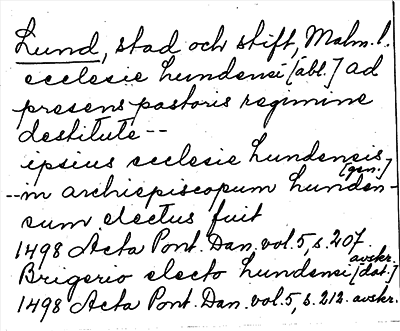 Lund, stad och stift, Malm. l.
ecclesie lundensi [abl.] ad
presens pastoris regimine
destitute --
ipsius ecclesie lundensis [gen.]
-- in archiepiscopum lunden-
sum electus fuit
1498 Acta Pont. Dan. vol. 5, s. 207. avskr.
Brigerio electo lundensi [dat.]
1498 Acta Pont. Dan. vol. 5, s. 212. avskr.